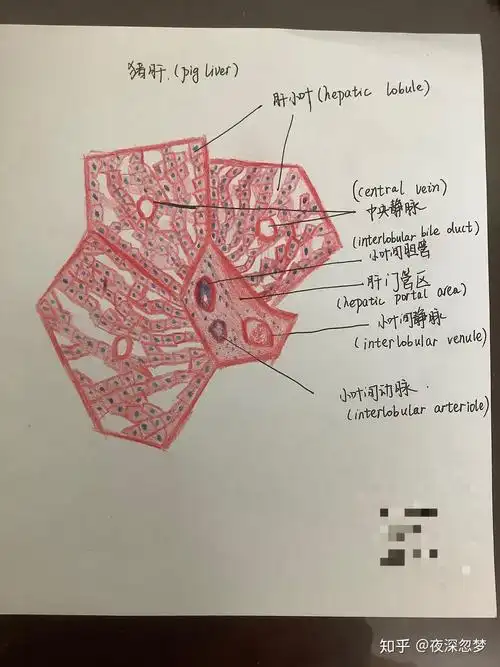 猪肝.(pig liver)
肝小叶(hepatic lobule)
(central vein)
中央静脉
(interlobular bile duct)
小叶间胆管
肝门管区
(hepatic portal area)
小叶间静脉
(interlobular venule)
小叶间动脉.
(interlobular arteriole)
知乎 @夜深忽梦